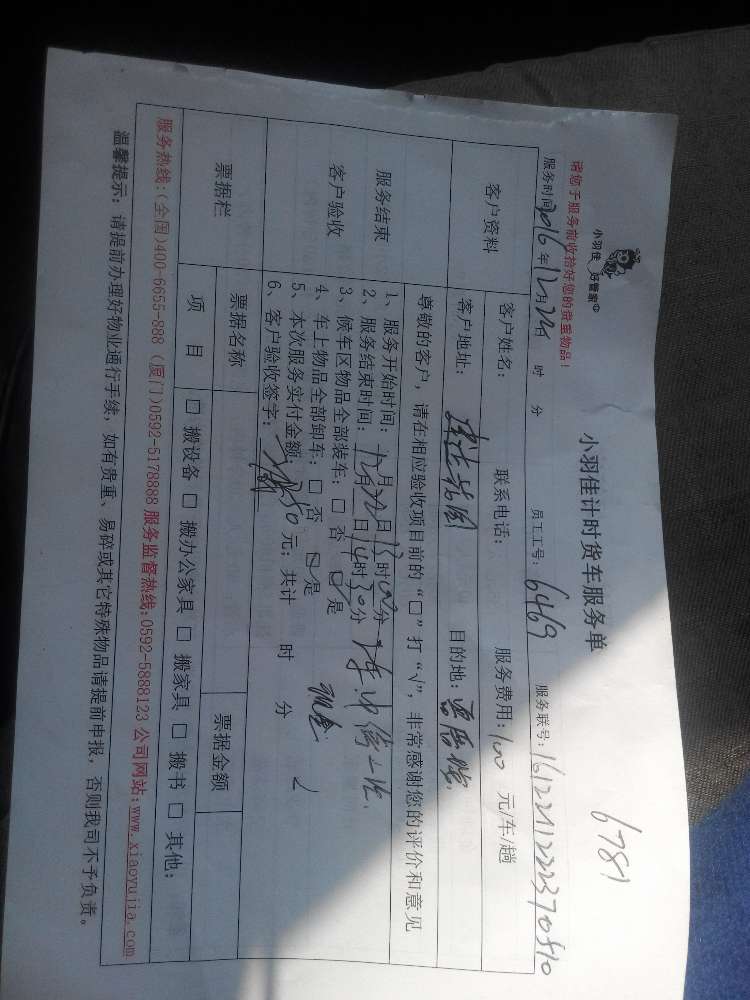 6781
小羽佳 好管家©
小羽佳计时货车服务单
请您于服务前收拾好您的贵重物品!
服务时间: 2016年12月22日 时 分 员工工号: 6469 服务联号: 1612211222370510
客户资料
客户姓名: 联系电话: 服务费用: 100 元/车/趟
客户地址: 目的地:
尊敬的客户,请在相应验收项目前的“□”打“√”,非常感谢您的评价和意见
服务结束
客户验收
1、服务开始时间: 12月22日13时00分
2、服务结束时间: 12月22日14时30分
3、候车区物品全部装车: □ 否 □ 是
4、车上物品全部卸车: □ 否 □ 是 现金
5、本次服务实付金额: 元; 共计 时 分
6、客户验收签字:
票据栏 票据名称 票据金额
项 目 □ 搬设备 □ 搬办公家具 □ 搬家具 □ 搬书 □ 其他:
服务热线:(全国)400-6655-888 (厦门)0592-5178888 服务监督热线:0592-5888123 公司网站:www.xiaoyujia.com
温馨提示: 请提前办理好物业通行手续, 如有贵重、易碎或其它特殊物品请提前申报, 否则我司不予负责。